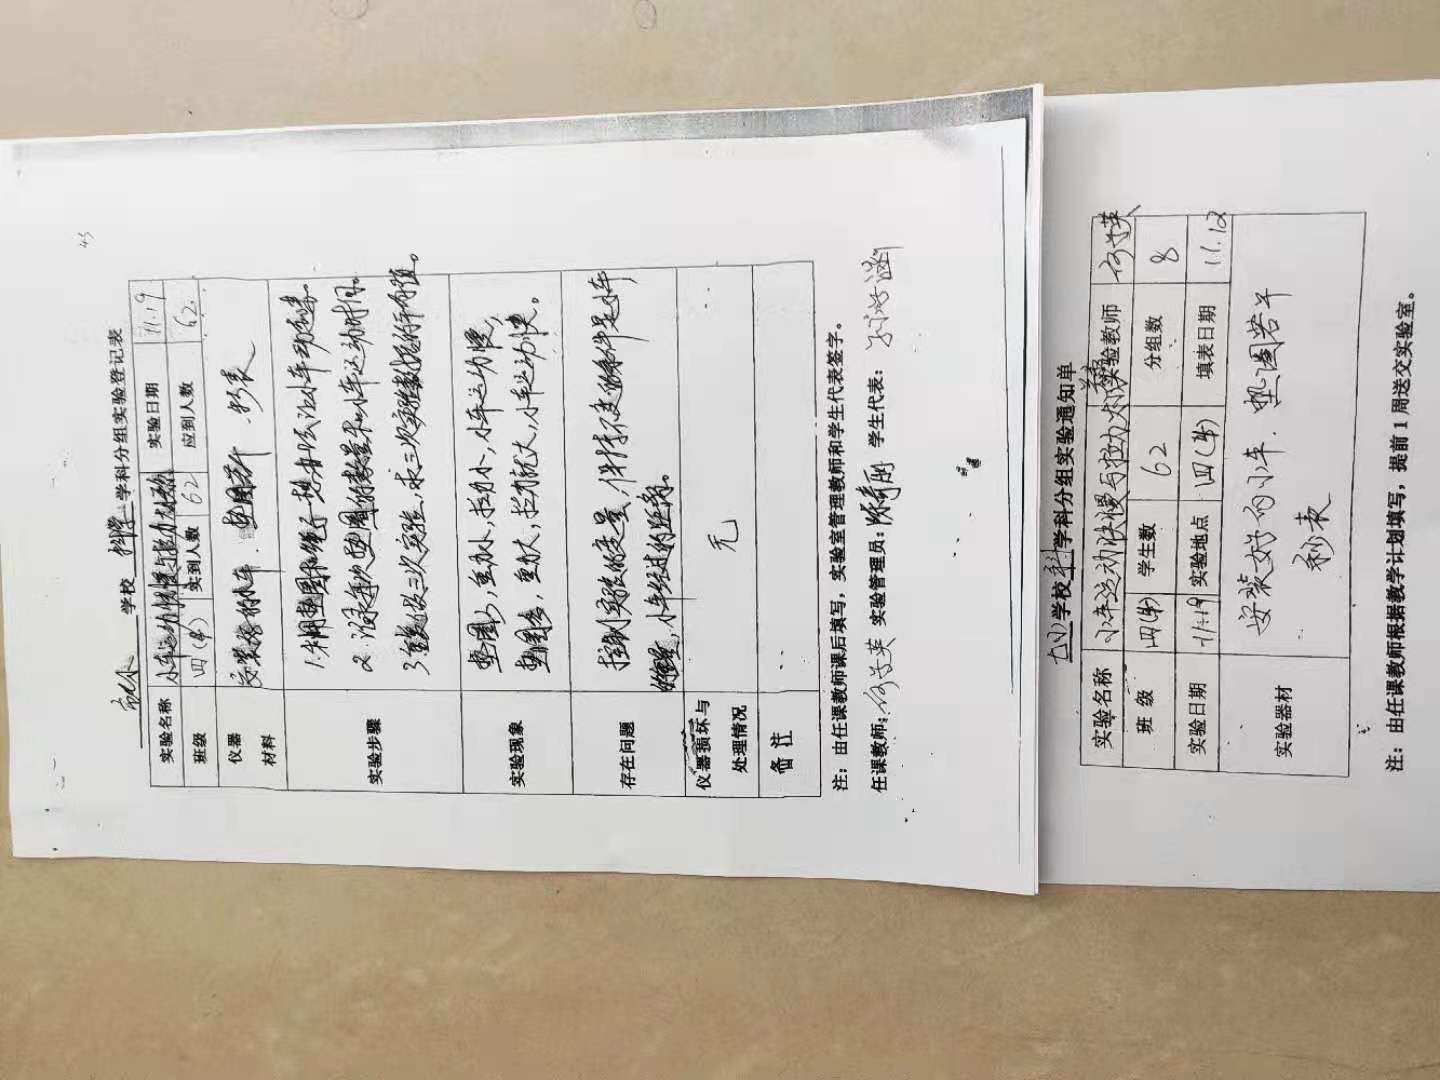 43
学校 科学 学科分组实验登记表
实验名称 小车运动快慢与拉力大小 实验日期 11.19
班级 四(4) 实到人数 62 应到人数 62
仪器材料 安装好的小车. 垫圈若干 秒表
实验步骤 1.利用垫圈和绳子想办法让小车动起来。
2.记录每次垫圈的数量和小车运动时间。
3.重复做三次实验,求三次实验数据的平均值。
实验现象 垫圈少,重力小,拉力小,小车运动慢,
垫圈多,重力大,拉力就大,小车运动快。
存在问题 控制实验的变量,保持不变的条件是小车
的重量,小车经过的距离。
仪器损坏与处理情况 无
备注
注:由任课教师课后填写,实验室管理教师和学生代表签字。
任课教师: 实验管理员: 学生代表:
学校 科学 学科分组实验通知单
实验名称 小车运动快慢与拉力 实验教师
班 级 四(4) 学生数 62 分组数 8
实验日期 11.19 实验地点 四(4) 填表日期 11.12
实验器材 安装好的小车. 垫圈若干
秒表
注:由任课教师根据教学计划填写,提前1周送交实验室。